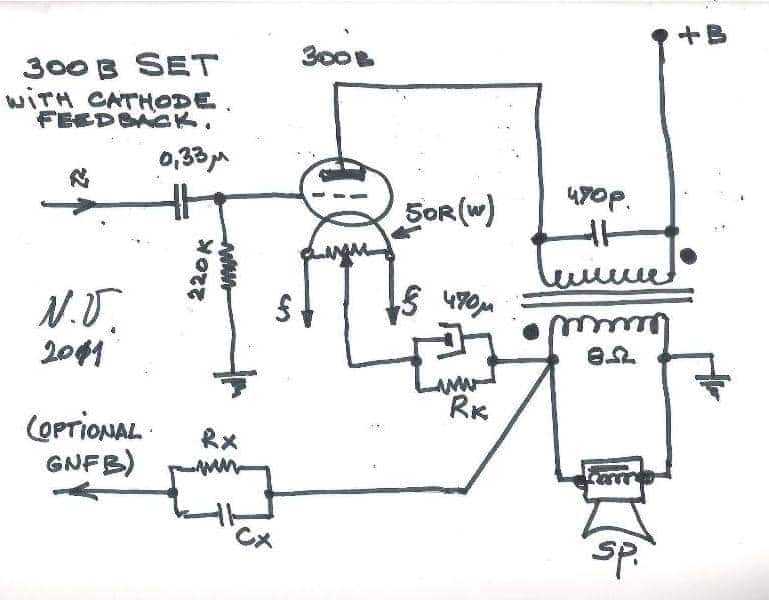 300B SET
WITH CATHODE
FEEDBACK.
300B
+B
0,33µ
470p.
50R(W)
220K
f
f
470µ
N.V.
2011
8Ω
RK
(OPTIONAL
GNFB)
RX
CX
SP.